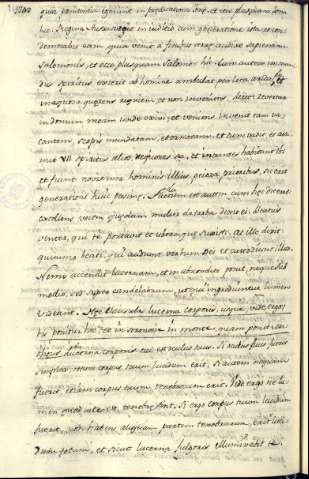 quia poenitentiam egerunt in praedicatione Ionae, et ecce plus quam Iona
hic. Regina surget in iudicio cum generatione ista et con
demnabit eam quia venit a finibus terrae audire sapientiam
Salomonis, et ecce plus quam Salomon hic. Cum autem immun
dus spiritus exierit ab homine ambulat per loca arida, et
inaquosa quaerens requiem, et non inveniens, dicit revertar
in domum meam unde exivi, et veniens invenit eam va
cantem, scopis mundatam, et ornatam, et tunc vadit et assu
mit VII spiritus alios, nequiores se, et intrantes habitant ibi
et fiunt novissima hominis illius, peiora prioribus, sic erit
generationi huic pessimae. Factum est autem cum haec diceret
extollens vocem quaedam mulier de turba dixit ei. Beatus
venter, qui te portavit et ubera quae suxisti. At ille dixit
quinimo beati, qui audiunt verbum Dei et custodiunt illud.
Nemo accendit lucernam, et in abscondito ponit, neque sub
modio, sed supra candelabrum, ut qui ingrediuntur lumen
videant.
lucerna corporis tui est oculus tuus. Si oculus tuus fuerit
simplex, totum corpus tuum lucidum erit. Si autem nequam
fuerit, etiam corpus tuum tenebrosum erit. Vide ergo ne lu
men quod in te est tenebrae sint. Si ergo corpus tuum lucidum
fuerit, non habens aliquam partem tenebrarum, erit luci
dum totum, et sicut lucerna fulgoris illuminabit te.